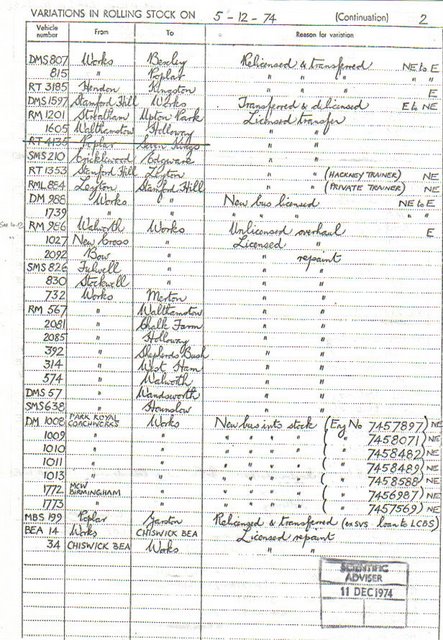 VARIATIONS IN ROLLING STOCK ON 5-12-74 (Continuation) 2
Vehicle number From To Reason for variation
DMS 807 Works Bexley Relicensed & transferred NE to E
815 " Poplar " " " "
RT 3185 Hendon Kingston " " E
DMS 1597 Stamford Hill Works Transferred & delicensed E to NE
RM 1201 Streatham Upton Park Licensed transfer
1605 Walthamstow Holloway " "
RT 4135 Poplar Seven Kings
SMS 210 Cricklewood Edgware " "
RT 1353 Stamford Hill Leyton " " (HACKNEY TRAINER) NE
RML 884 Leyton Stamford Hill " " (PRIVATE TRAINER) NE
DM 988 Works " New bus licensed NE to E
1739 " " " " " "
RM 986 Walworth Works Unlicensed overhaul E
1027 New Cross " Licensed "
2092 Bow " " repaint
SMS 826 Fulwell " " "
830 Stockwell " " "
732 Works Merton " "
RM 567 " Walthamstow " "
2061 " Chalk Farm " "
2085 " Holloway " "
392 " Shepherds Bush " "
314 " West Ham " "
574 " Walworth " "
DMS 57 " Wandsworth " "
SMS 638 " Hounslow " "
DM 1008 PARK ROYAL COACHWORKS Works New bus into stock (Eng No 7457897) NE
1009 " " " " " " ( " 7458071) NE
1010 " " " " " " ( " 7458482) NE
1011 " " " " " " ( " 7458489) NE
1013 " " " " " " ( " 7458588) NE
1772 MCW BIRMINGHAM " " " " " ( " 7456987) NE
1773 " " " " " " ( " 7457569) NE
MBS 199 Poplar Garston Relicensed & transferred (ex SVS loan to LCBS)
BEA 14 Works CHISWICK BEA Licensed repaint
34 CHISWICK BEA Works " "
SCIENTIFIC
ADVISER
11 DEC 1974